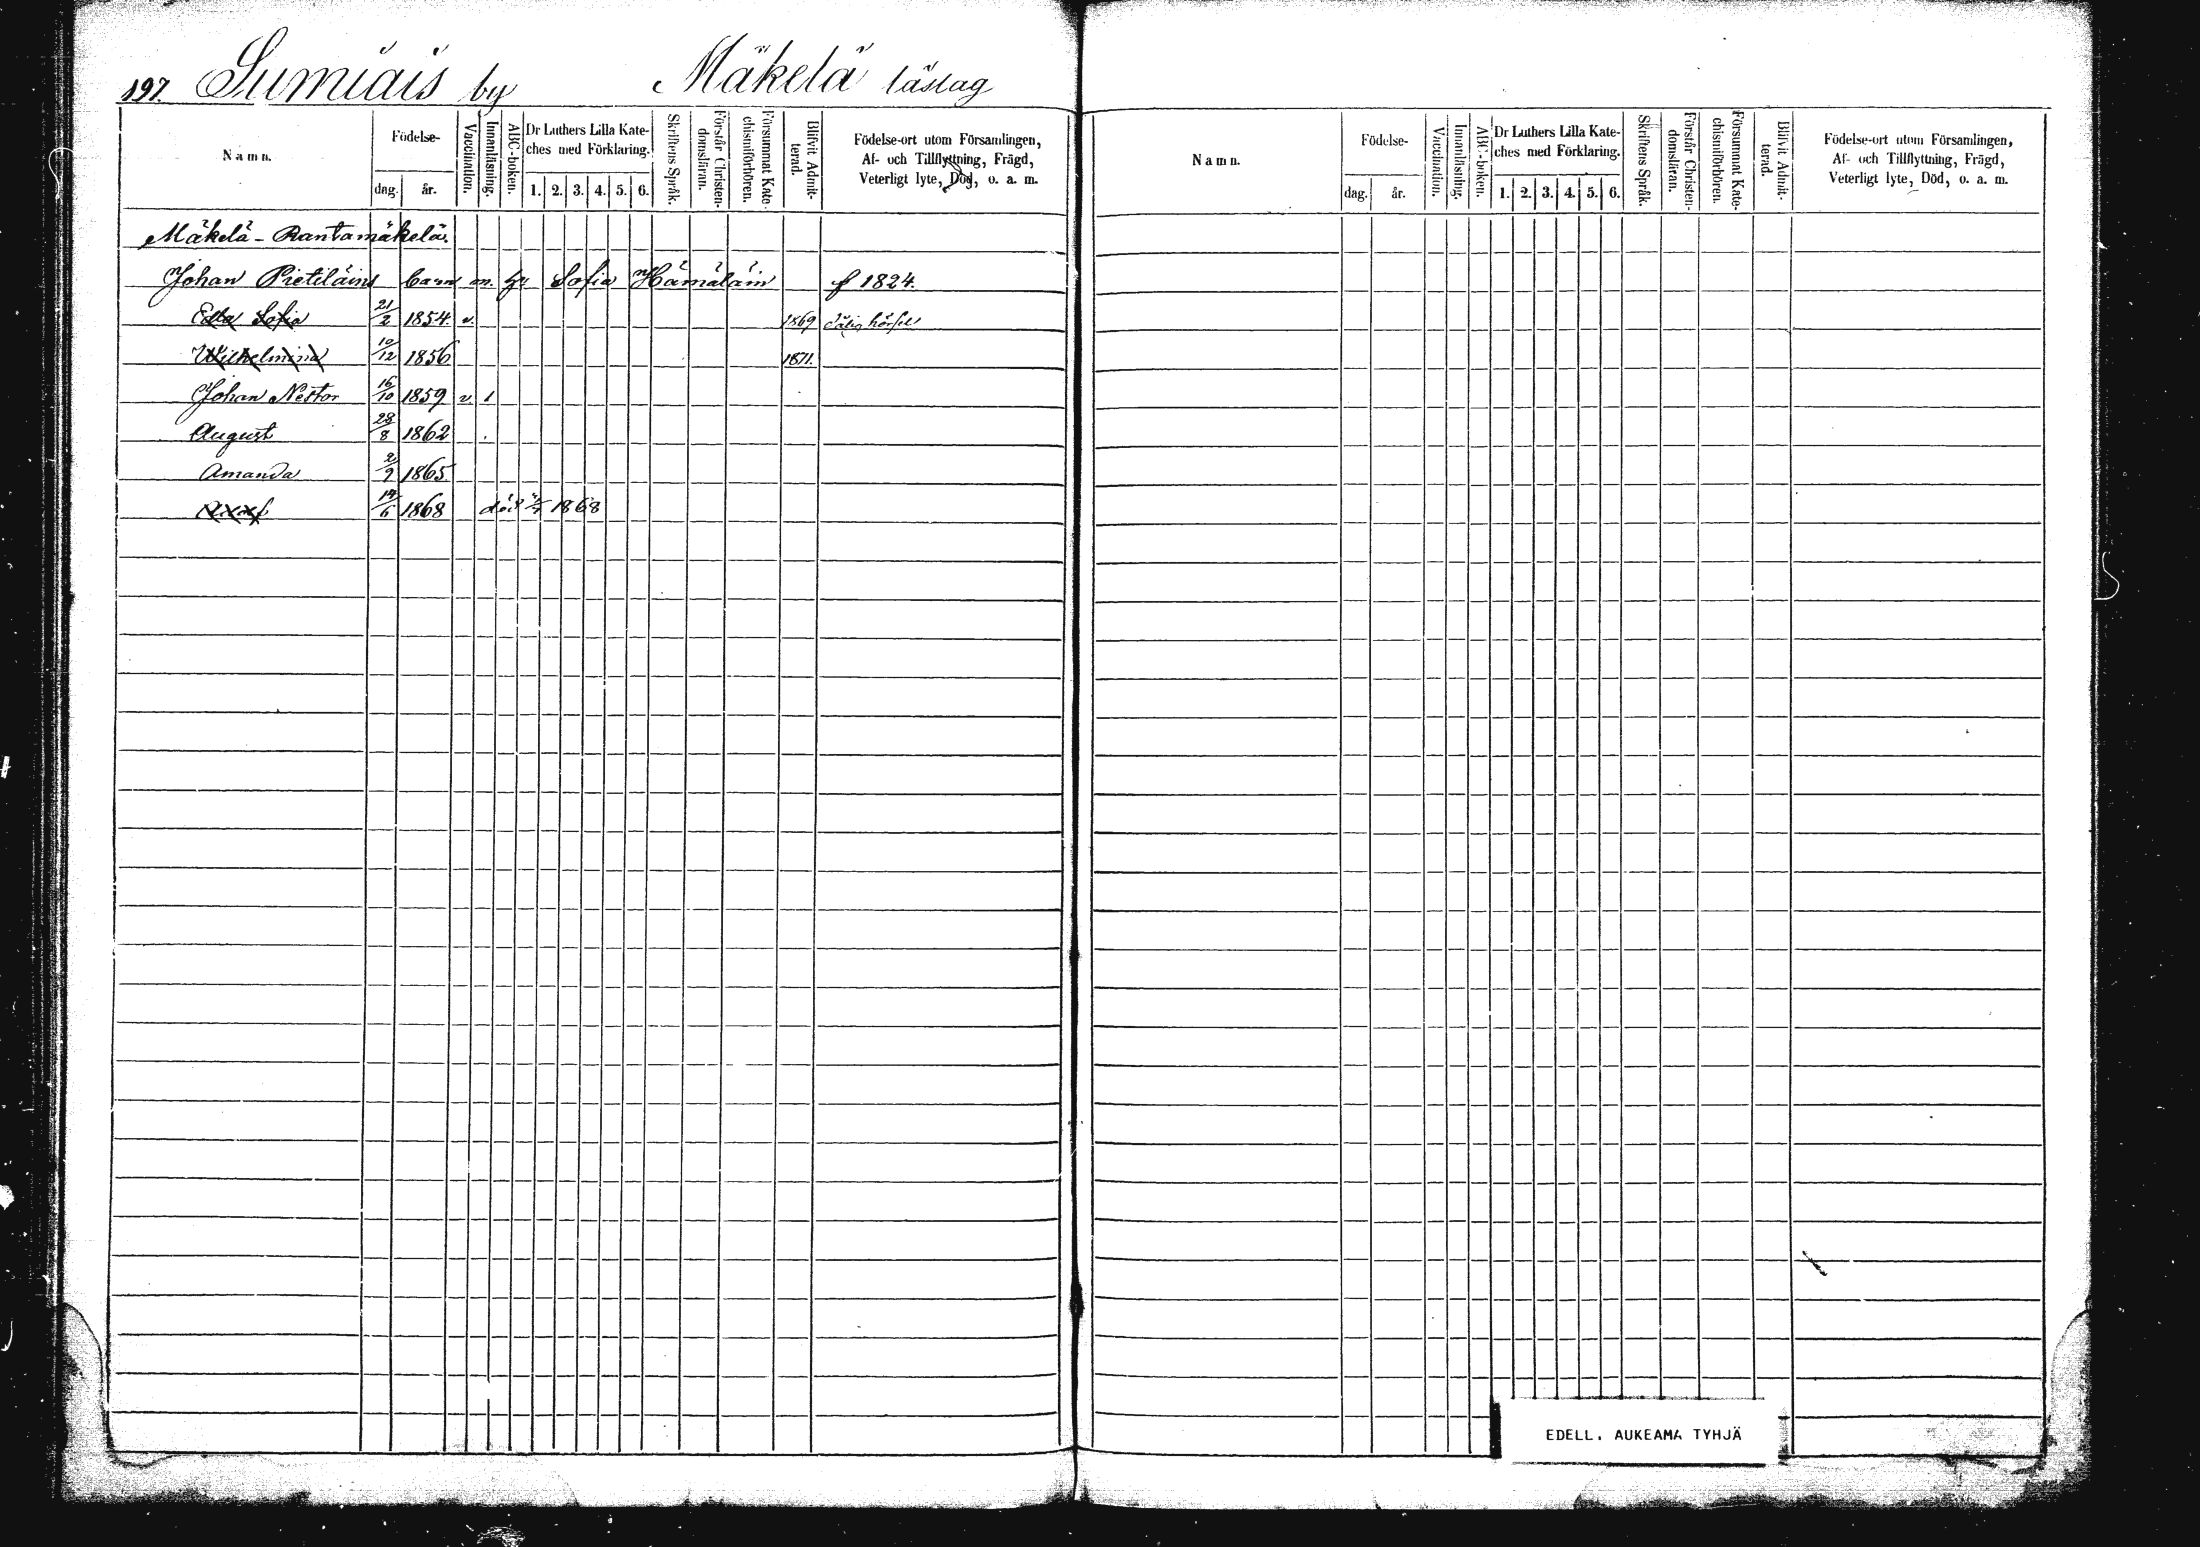 197. Sumiais by Mäkelä läslag
Namn. Födelse- dag. år. Vaccination. Innanläsning. ABC-boken. Dr Luthers Lilla Kate-
ches med Förklaring. 1. 2. 3. 4. 5. 6. Skriftens Språk. Förstår Christen-
domsläran. Försummat Kate-
chismiförhören. Blifvit Admit-
terad. Födelse-ort utom Församlingen,
Af- och Tillflyttning, Frägd,
Veterligt lyte, Död, o. a. m.
Mäkelä - Rantamäkelä.
Johan Pietiläins barn m. h. Sofia Hämäläin f 1824.
Edla Sofia 21/2 1854. v. 1869 dålig hörsel
Wilhelmina 10/12 1856 1871.
Johan Nestor 16/10 1859 v. 1
August 28/8 1862
Amanda 2/9 1865.
14/6 1868 död 1868
Namn. Födelse- dag. år. Vaccination. Innanläsning. ABC-boken. Dr Luthers Lilla Kate-
ches med Förklaring. 1. 2. 3. 4. 5. 6. Skriftens Språk. Förstår Christen-
domsläran. Försummat Kate-
chismiförhören. Blifvit Admit-
terad. Födelse-ort utom Församlingen,
Af- och Tillflyttning, Frägd,
Veterligt lyte, Död, o. a. m.
EDELL. AUKEAMA TYHJÄ